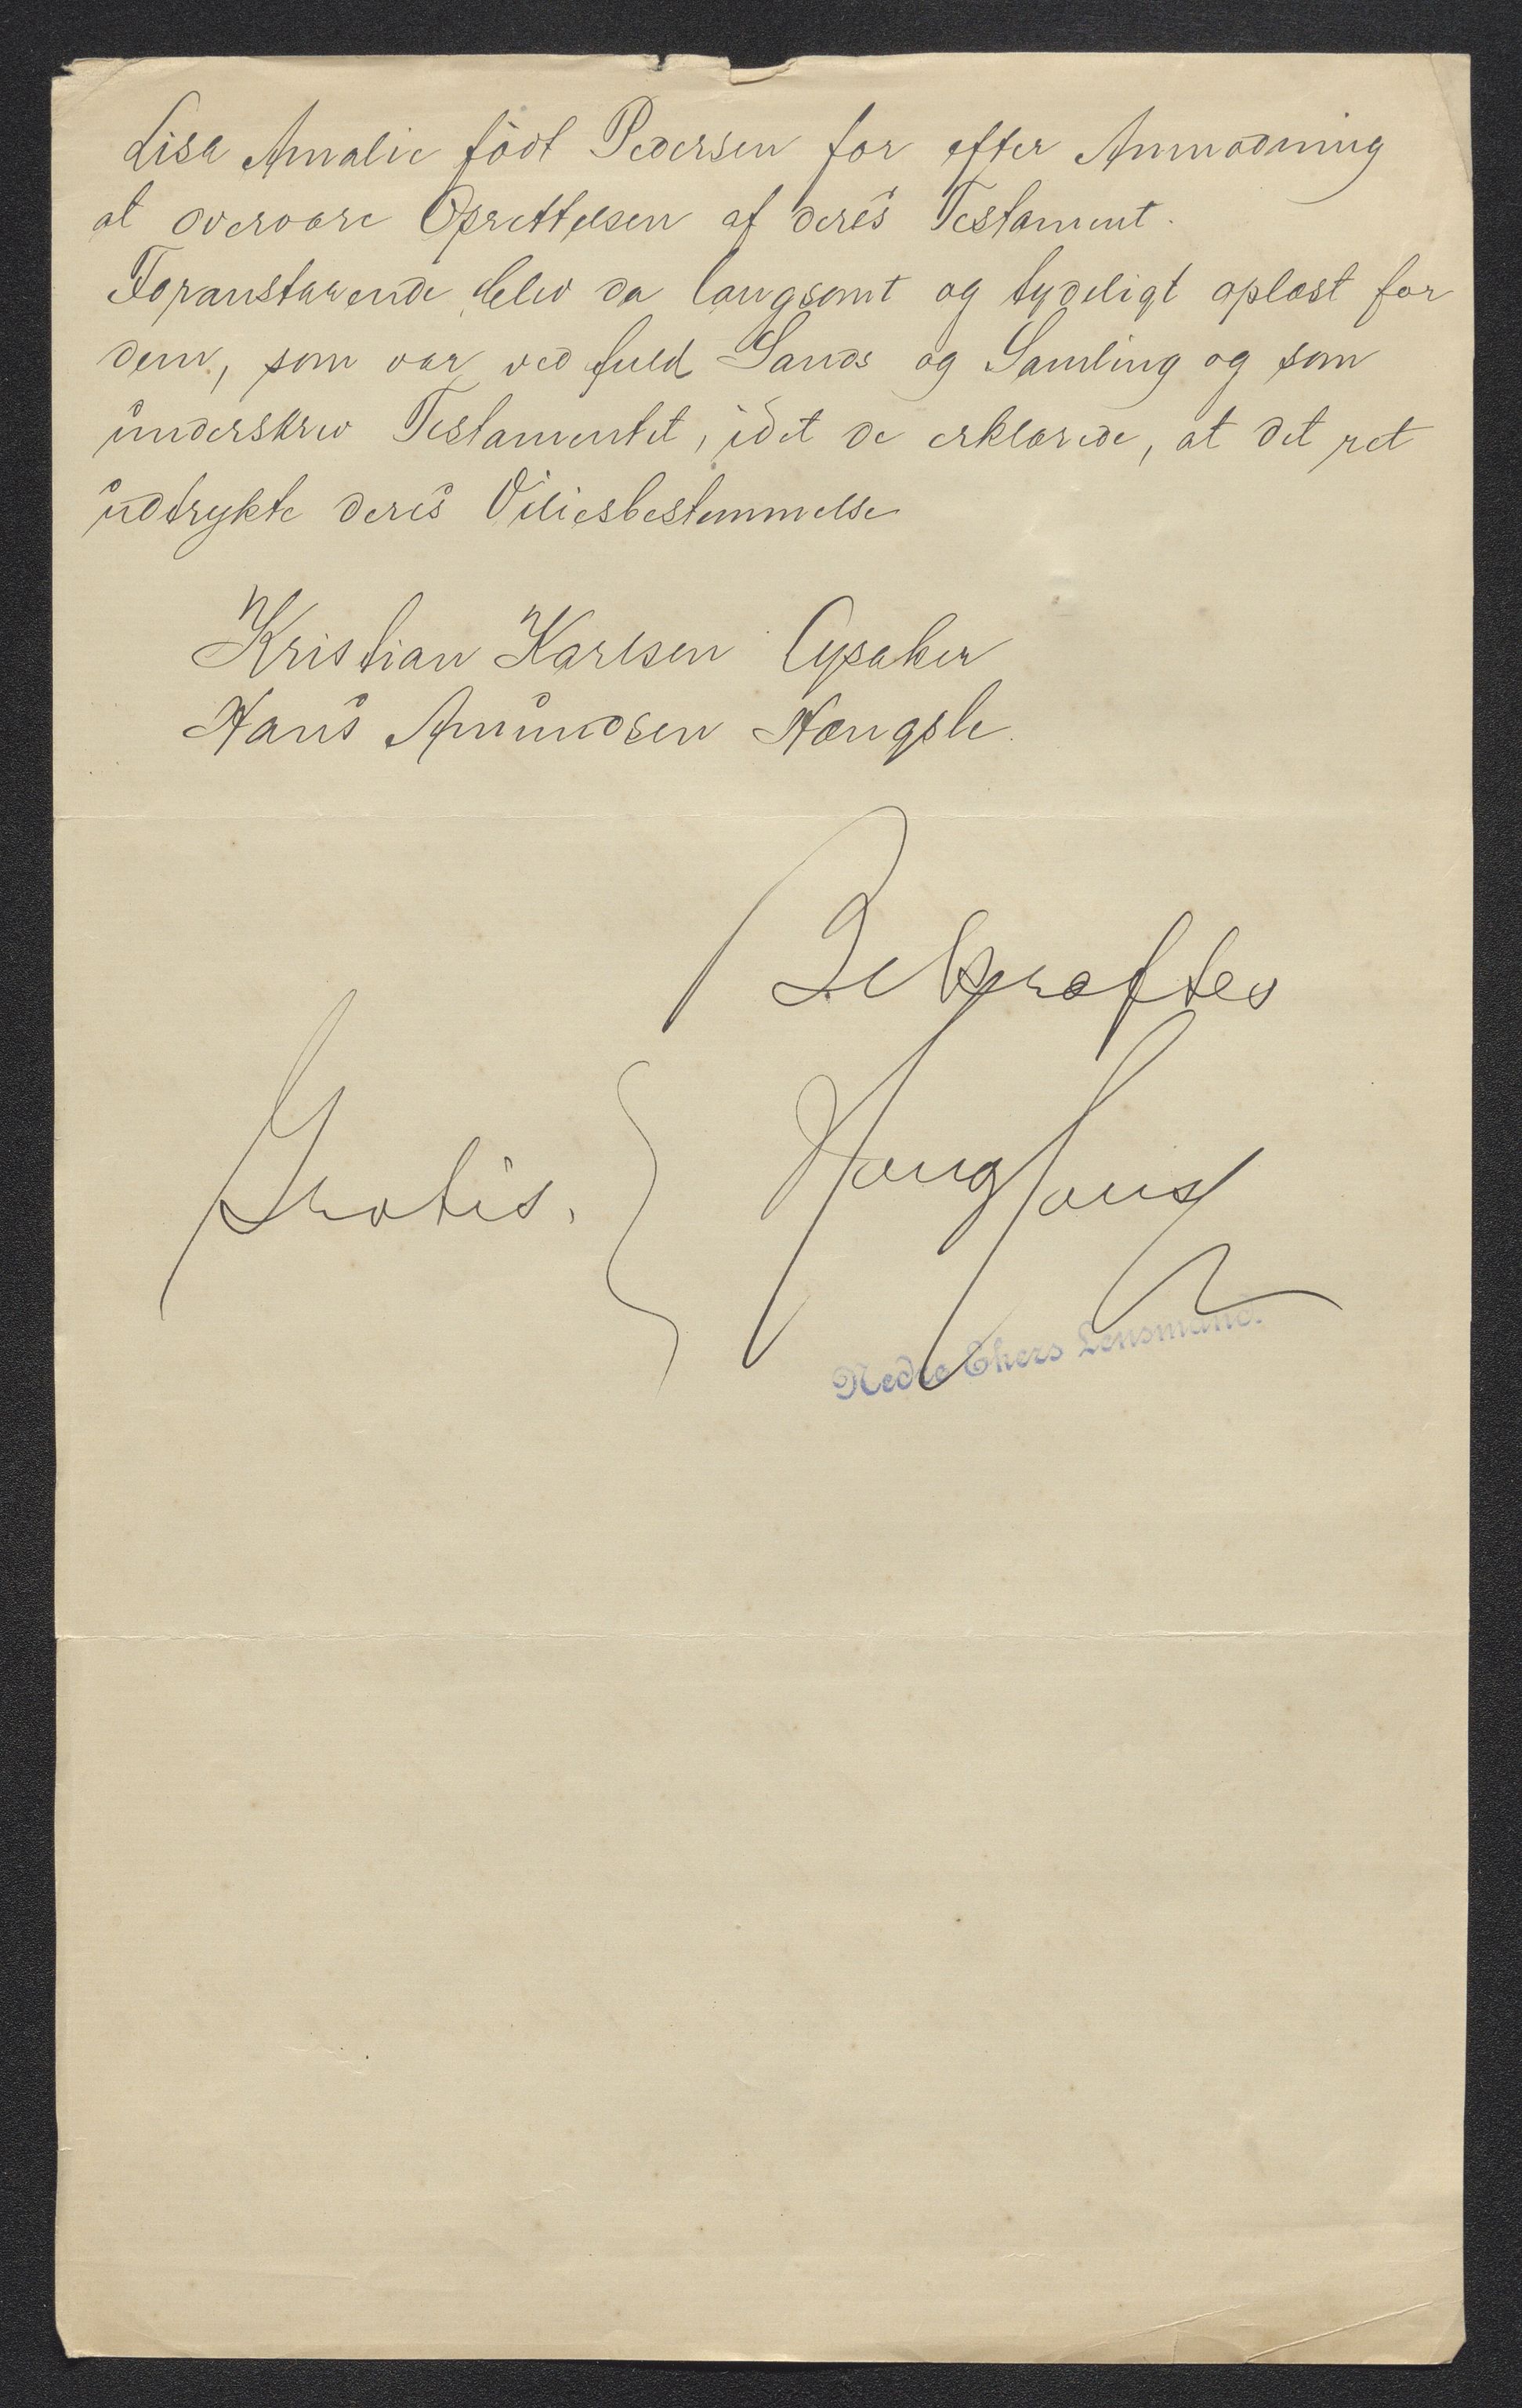 Lisa Amalie födt Pedersen for efter Anmodning
at overvære Oprettelsen af deres Testament.
Foranstaaende blev da langsomt og tydeligt oplæst for
dem, som var ved fuld Sands og Samling og som
underskrev Testamentet, idet de erklærede, at det ret
udtrykte deres Viliesbestemmelse
Kristian Karlsen Lysaker
Hans Amundsen Hængsle.
Bekræftes
Gratis.
Nedre Ekers Lensmand.